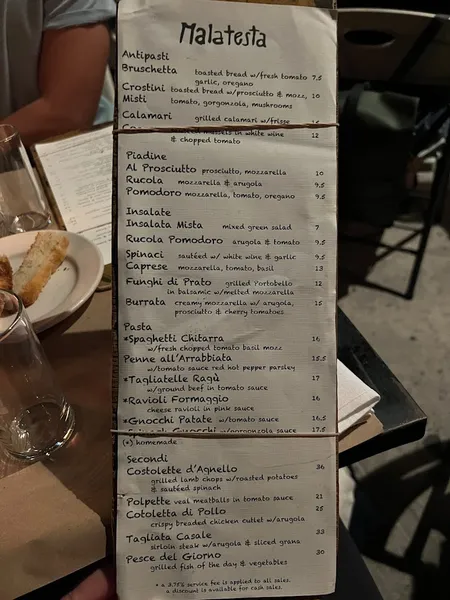 Malatesta
Antipasti
Bruschetta toasted bread w/fresh tomato 7.5
garlic, oregano
Crostini toasted bread w/prosciutto & mozz, 10
Misti tomato, gorgonzola, mushrooms
Calamari grilled calamari w/frisse
mussels in white wine 12
& chopped tomato
Piadine
Al Prosciutto prosciutto, mozzarella 10
Rucola mozzarella & arugola 9.5
Pomodoro mozzarella, tomato, oregano 9.5
Insalate
Insalata Mista mixed green salad 7
Rucola Pomodoro arugola & tomato 9.5
Spinaci sautéed w/ white wine & garlic 9.5
Caprese mozzarella, tomato, basil 13
Funghi di Prato grilled Portobello 12
in balsamic w/melted mozzarella
Burrata creamy mozzarella w/ arugola, 15
prosciutto & cherry tomatoes
Pasta
*Spaghetti Chitarra 16
w/fresh chopped tomato basil mozz
Penne all'Arrabbiata 15.5
w/tomato sauce red hot pepper parsley
*Tagliatelle Ragù 17
w/ground beef in tomato sauce
*Ravioli Formaggio 16
cheese ravioli in pink sauce
*Gnocchi Patate w/tomato sauce 16.5
Gnocchi w/gorgonzola sauce 17.5
(*) homemade
Secondi
Costolette d'Agnello 36
grilled lamb chops w/roasted potatoes
& sautéed spinach
Polpette veal meatballs in tomato sauce 21
Cotoletta di Pollo 25
crispy breaded chicken cutlet w/arugola
Tagliata Casale 33
sirloin steak w/arugola & sliced grana
Pesce del Giorno 30
grilled fish of the day & vegetables
* a 3.75% service fee is applied to all sales.
a discount is available for cash sales.